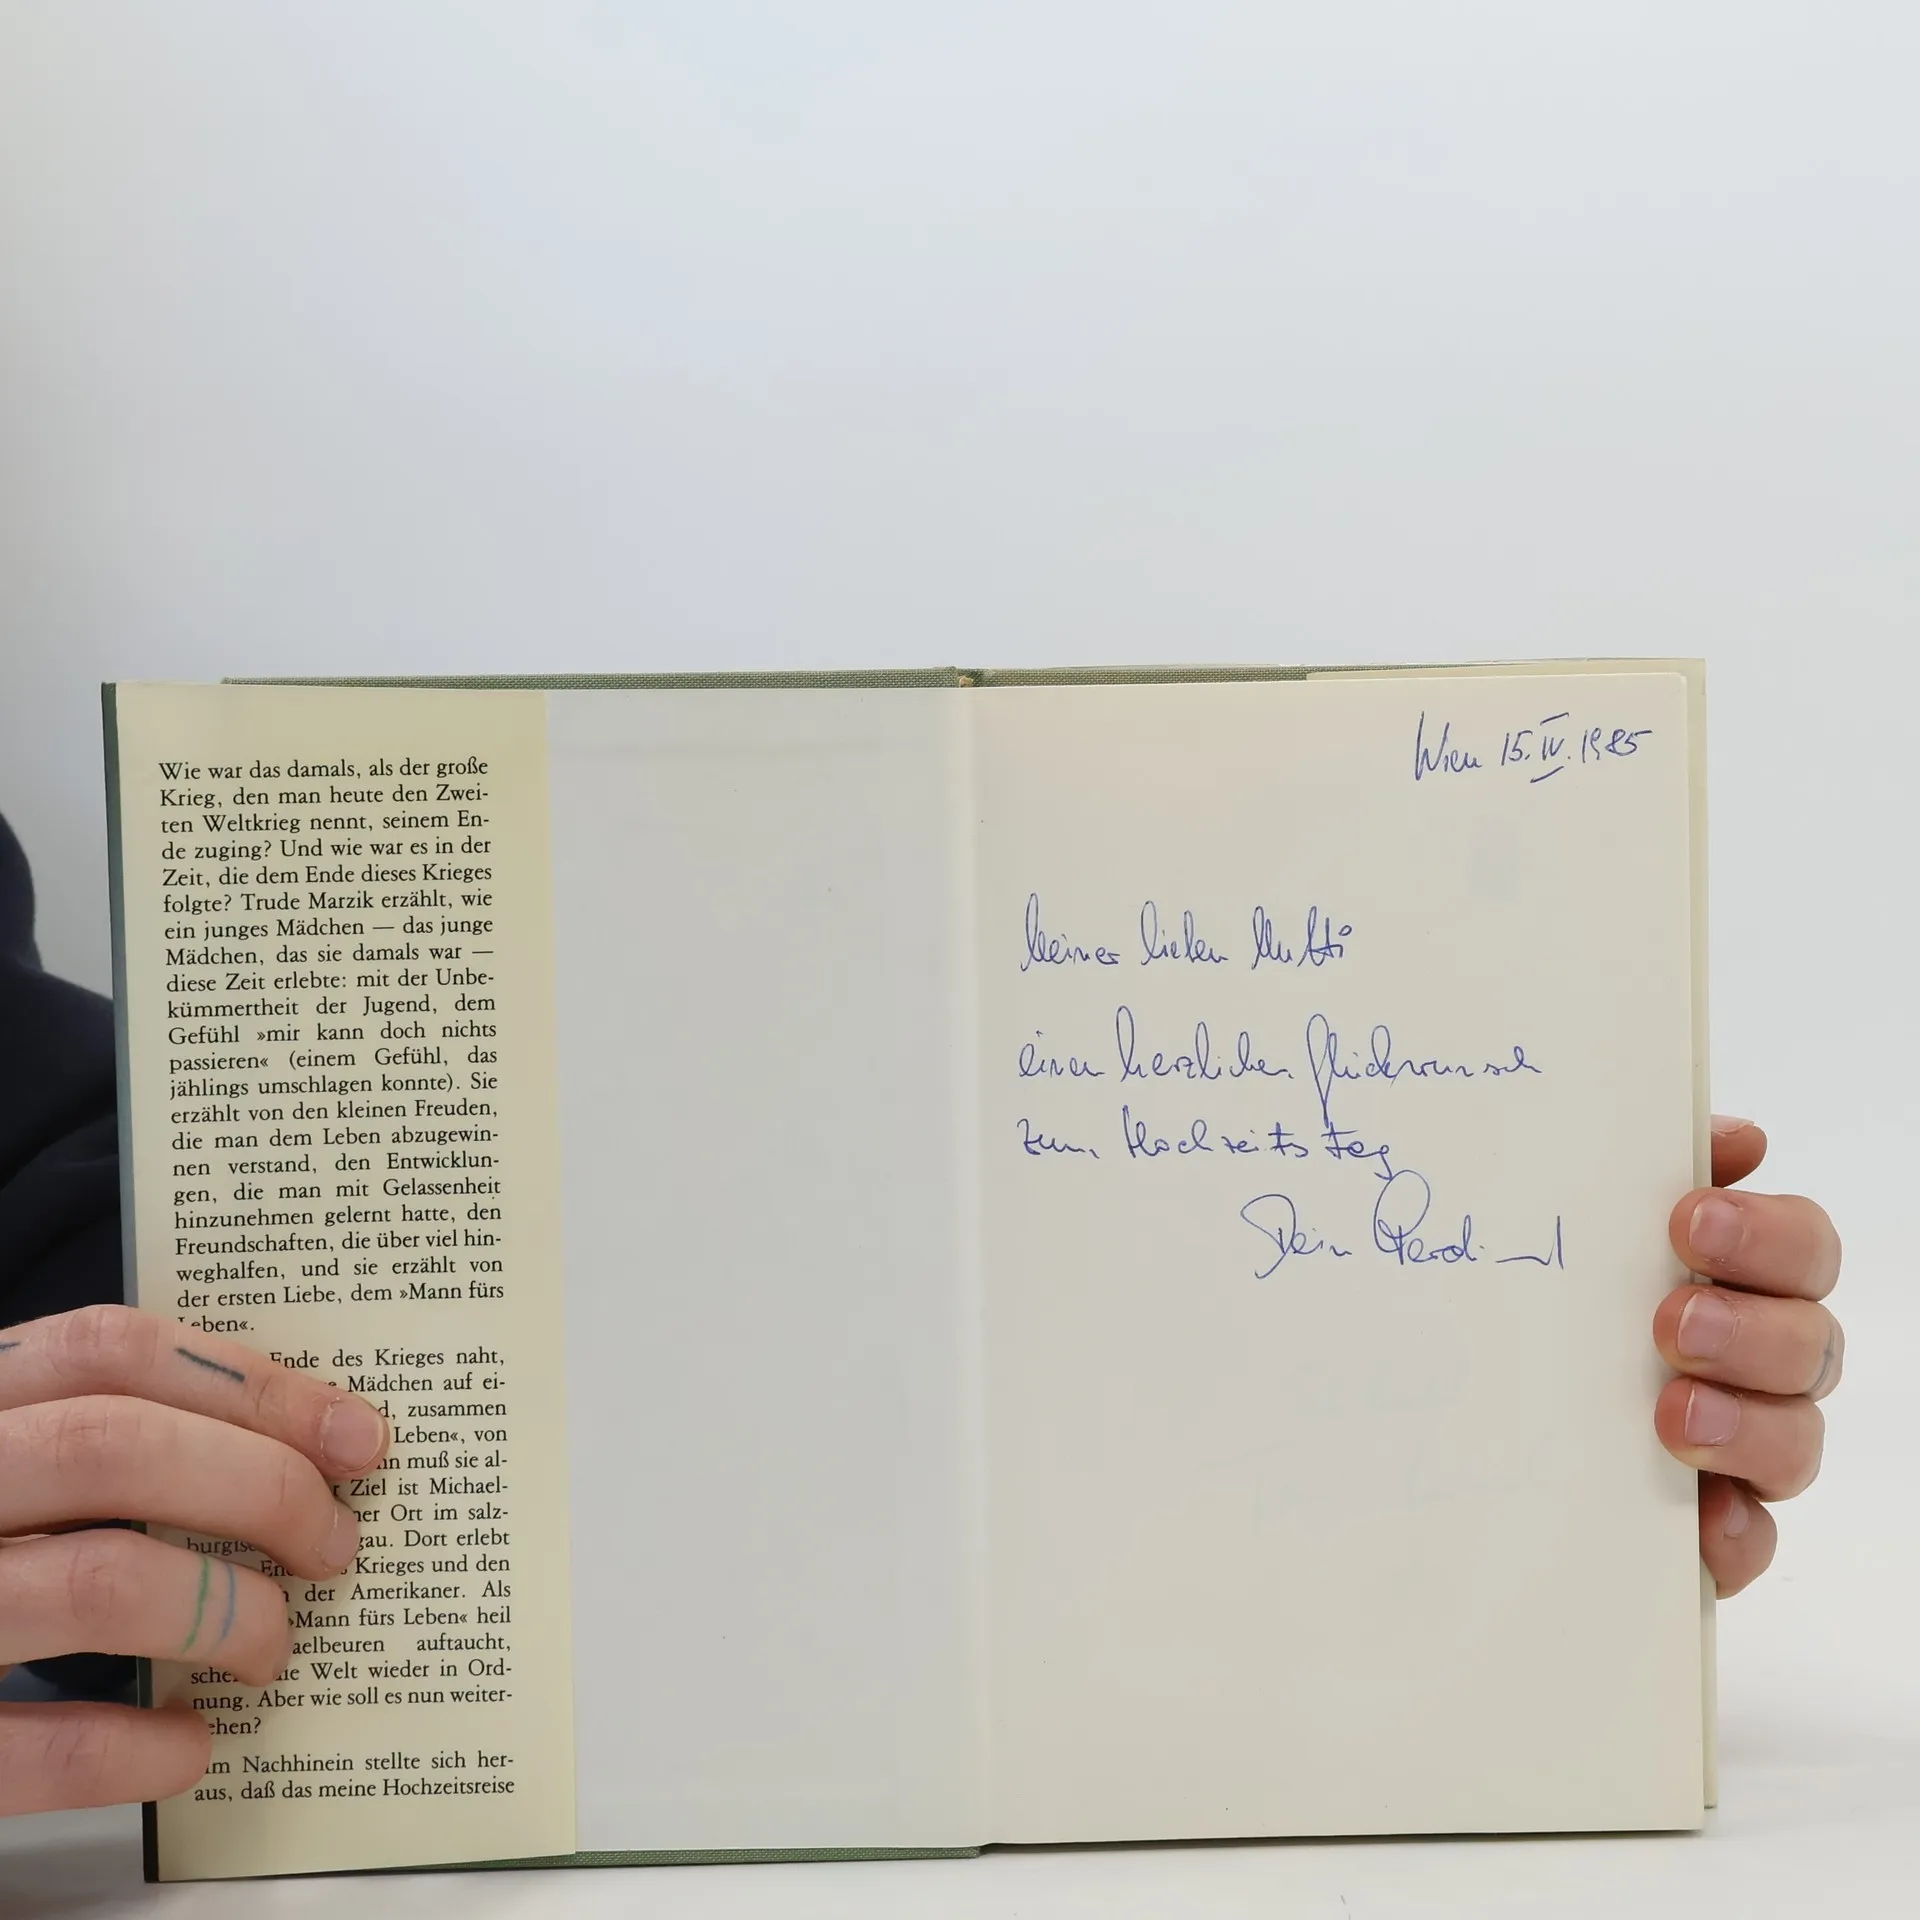 Wie war das damals, als der große
Krieg, den man heute den Zwei-
ten Weltkrieg nennt, seinem En-
de zuging? Und wie war es in der
Zeit, die dem Ende dieses Krieges
folgte? Trude Marzik erzählt, wie
ein junges Mädchen — das junge
Mädchen, das sie damals war —
diese Zeit erlebte: mit der Unbe-
kümmertheit der Jugend, dem
Gefühl »mir kann doch nichts
passieren« (einem Gefühl, das
jählings umschlagen konnte). Sie
erzählt von den kleinen Freuden,
die man dem Leben abzugewin-
nen verstand, den Entwicklun-
gen, die man mit Gelassenheit
hinzunehmen gelernt hatte, den
Freundschaften, die über viel hin-
weghalfen, und sie erzählt von
der ersten Liebe, dem »Mann fürs
Leben«.
Ende des Krieges naht,
Mädchen auf ei-
zusammen
Leben«, von
muß sie al-
Ziel ist Michael-
Ort im salz-
Dort erlebt
Krieges und den
der Amerikaner. Als
»Mann fürs Leben« heil
auftaucht,
die Welt wieder in Ord-
nung. Aber wie soll es nun weiter-
Im Nachhinein stellte sich her-
aus, daß das meine Hochzeitsreise
Wien 15. IV. 1985
Meiner lieben Mutti
einen herzlichen Glückwunsch
zum Hochzeitstag
Dein Ferdinand